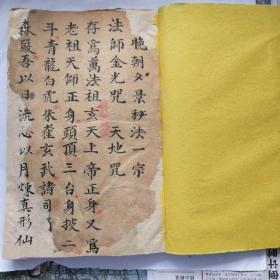 晚朝夕景秘法一宗
法師金光咒　天地咒
存爲萬法祖玄天上帝正身又爲
老祖天師正身頭頂三台身披二
斗青龍白虎朱雀玄武諸司
森嚴吾以日洗心以月煉真形仙